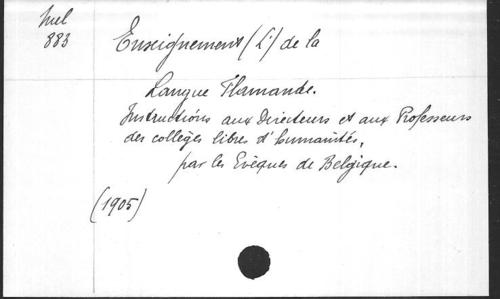 Mel
883
Enseignement (L') de la
Langue Flamande.
Instructions aux Directeurs et aux Professeurs
des collèges libres d'humanités,
par les Evêques de Belgique.
(1905)